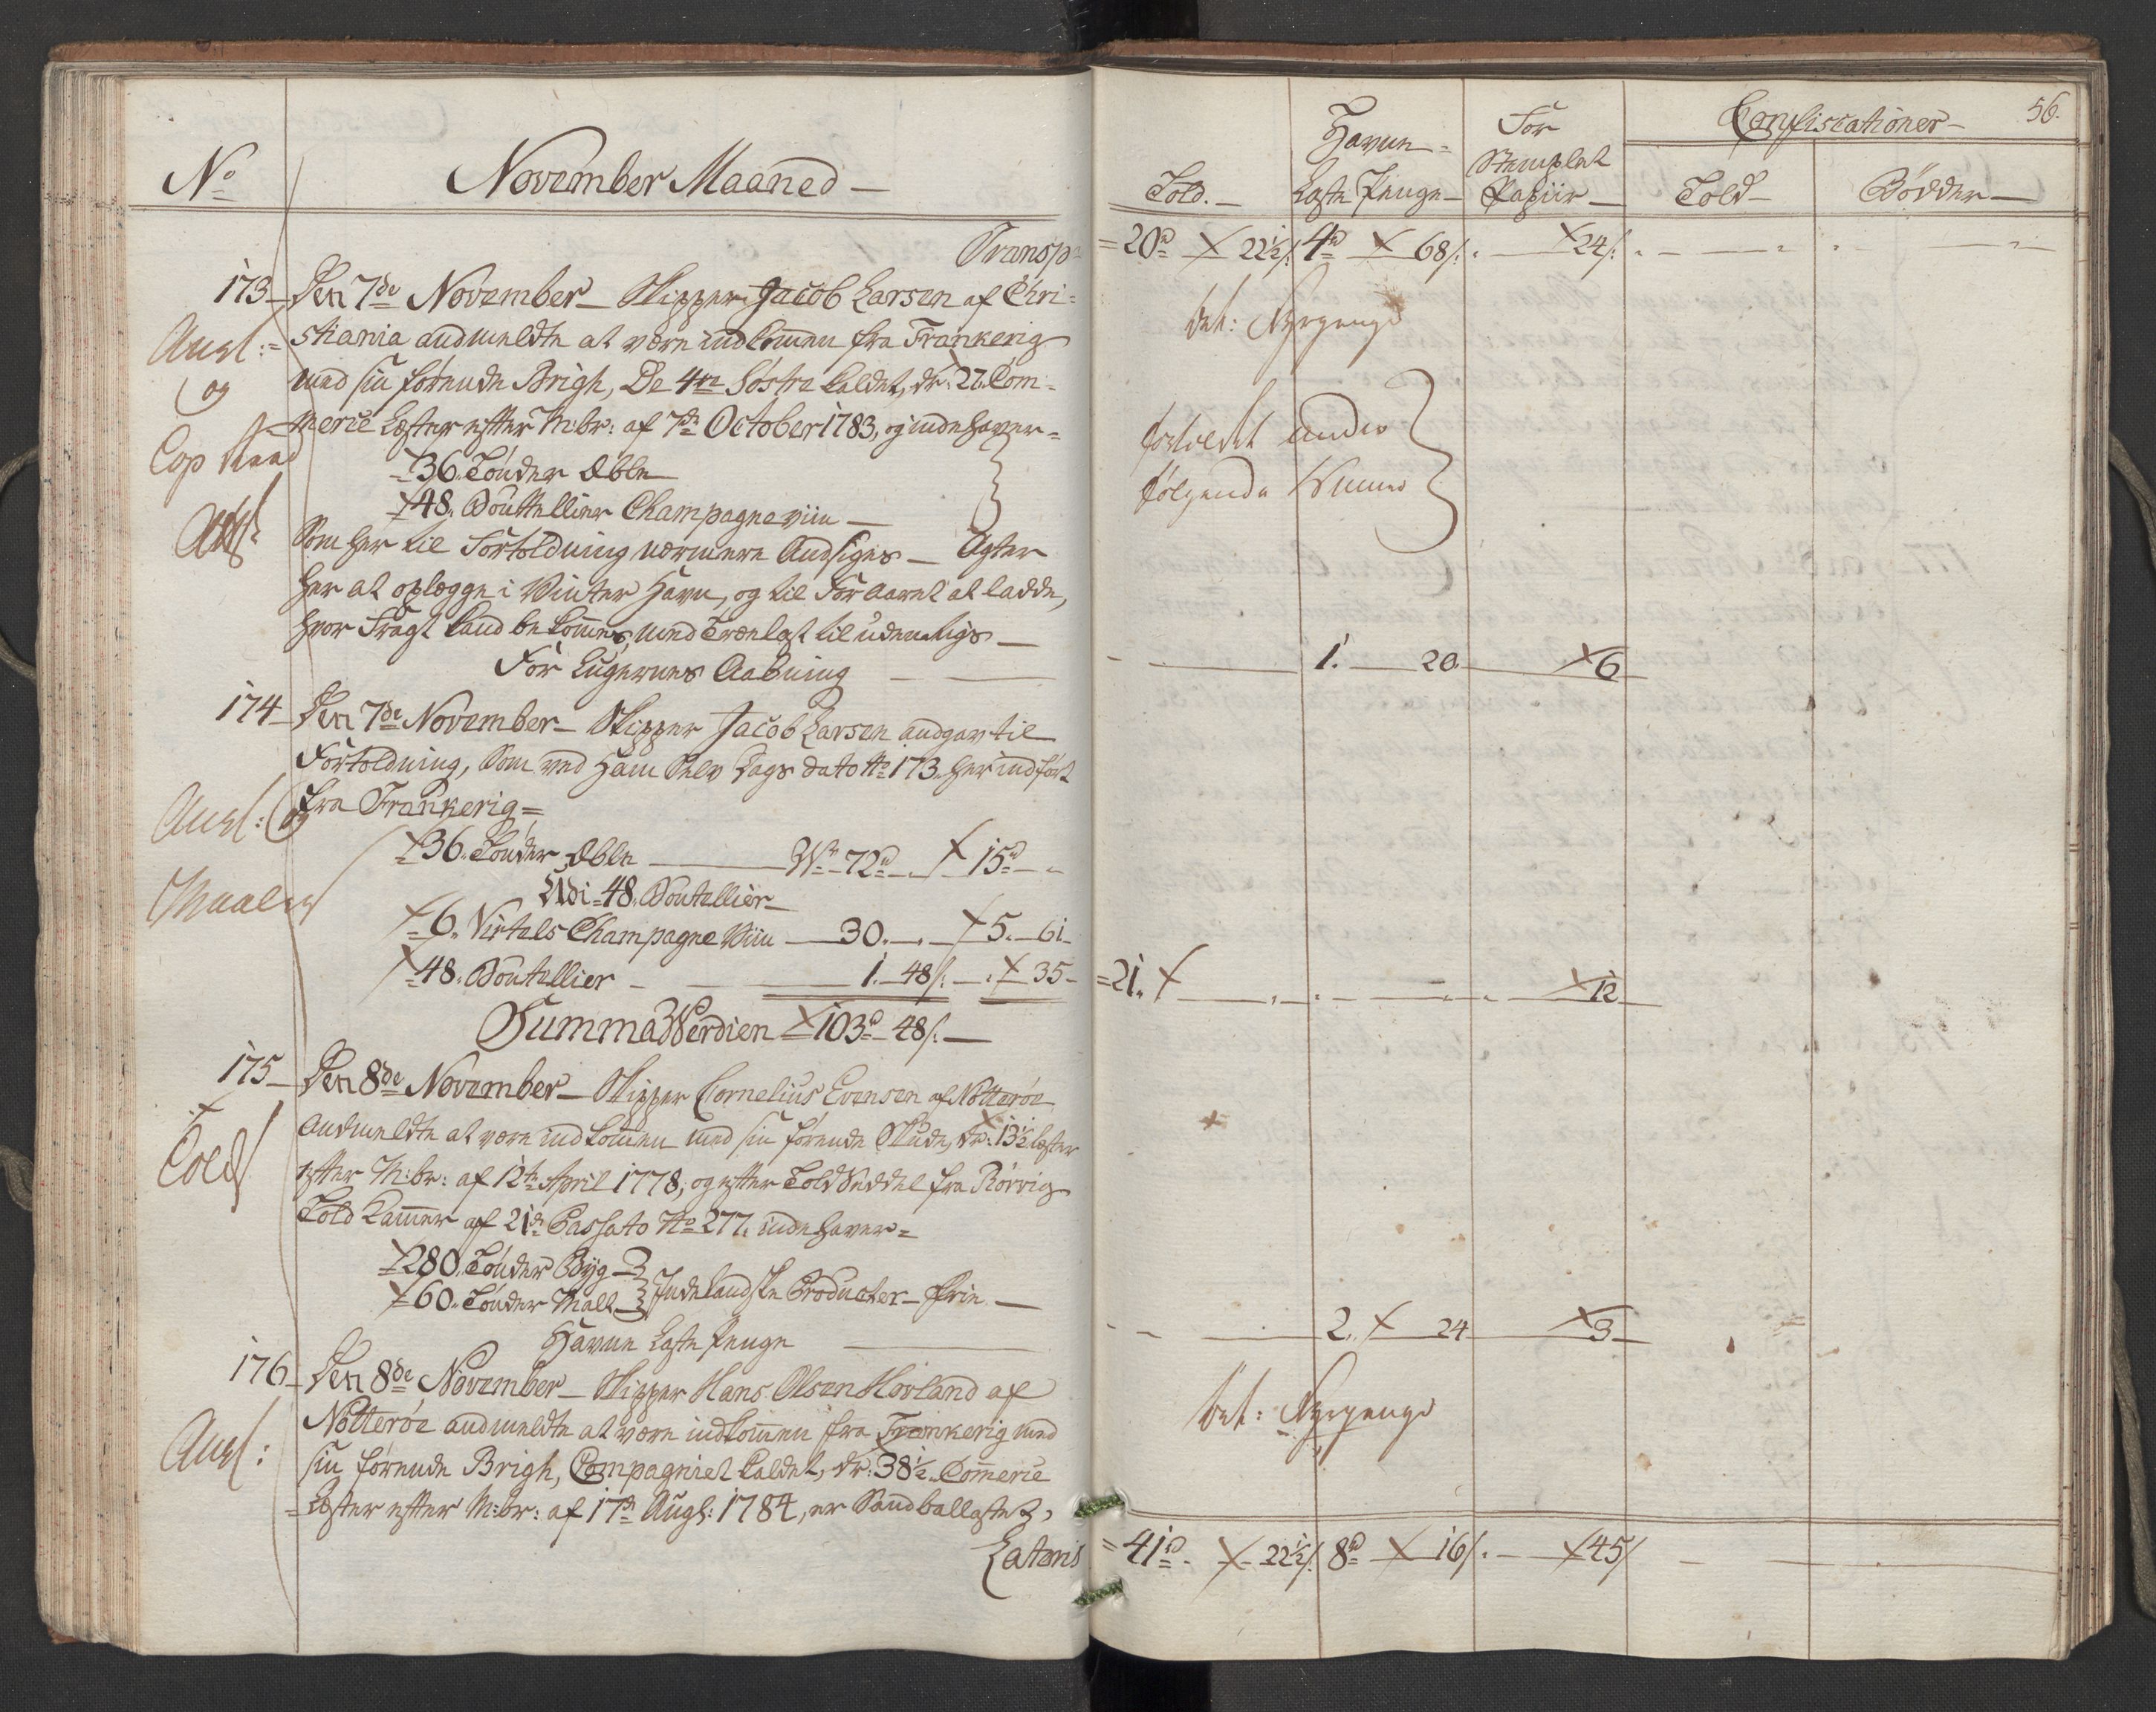 No
November Maaned —
Transp:
173 Den 7de November — Skipper Jacob Larsen af Chri=
stiania andmeldte at være indkommen fra Frankerig
med sin førende Brigh, De 4re Søstre kaldet, dr: 27 Com=
merce Læster efter M:br: af 7de October 1783, og indehaver=
Angl:
og
36. Tønder Æble
48. Bouttellier Champagne viin —
Som her til Fortoldning nærmere Andgives — Agter
her at oplægge i Winter Havn, og til Foraaret at ladde,
hvor Fragt kand bekommes, med Trælast til udenrigs —
For Lugernes Aabning
174 Den 7de November — Skipper Jacob Larsen andgav til
Fortoldning, Som ved ham Selv Dags dato No 173. her indført
fra Frankerig =
Angl:
36. Tønder Æble — W: 72rd — 15rd
Udi 48. Boutellier —
6. Virtels Champagne Viin — 30. — 5. 61
48. Boutellier — 1. 48/: — 35
Summa Werdien 103rd 48/: —
175 Den 8de November — Skipper Cornelius Evensen af Nøtterøe
andmeldte at være indkommen med sin førende Skude, dr: 13½ læster
efter M:br: af 12te April 1778, og efter Told Seddel fra Rørvig
Told Kammer af 21de Passato No 277. indehaver =
280. Tønder Byg
60. Tønder Malt } Indelandske Producter — frie —
Havne Læste Penge
176 Den 8de November — Skipper Hans Olsen Hovland af
Nøtterøe andmeldte at være indkommen fra Frankerig med
sin førende Brigh, Compagniet kaldet, dr: 38½ Commerce
Angl:
Læster efter M:br: af 17de Augl: 1784, er Sandballastet,
Lateris
56.
Told. — Havne = Læste Penge — For Stemplet Papiir — Confiscationer —
Told — Bødder —
= 20rd 22½/: 4rd 68/: 24/:
bet: Fyrpenge
fortoldt under
følgende Numer
1. 20 6
= 21. 12
2. 24 3
bet: Fyrpenge
= 41rd 22½/: 8rd 16/: 45/